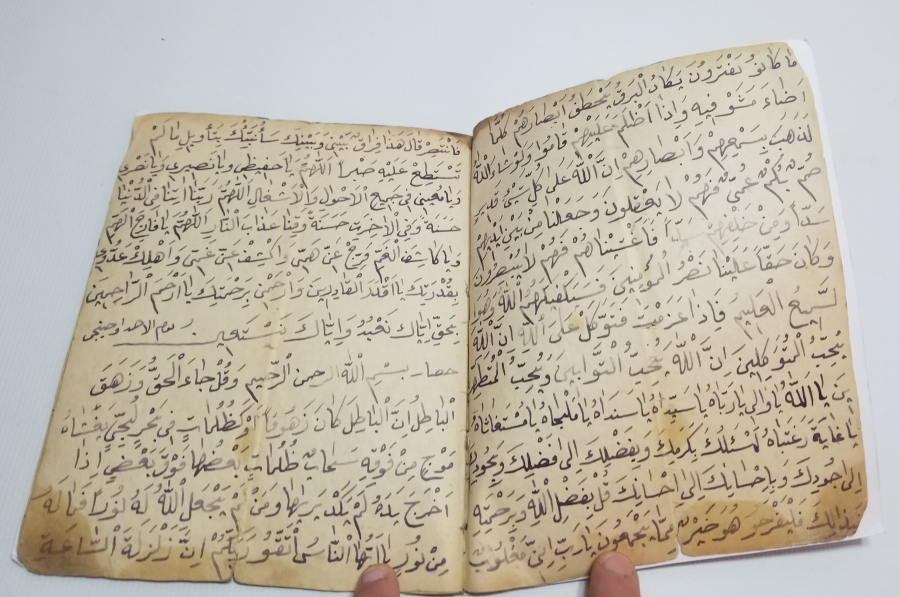 ما كانو يفترون يكاد البرق يخطف ابصارهم كلما
اضاء مشو فيه واذا اظلم عليهم قاموا ولوشاء الله
لذهب بسمعهم وابصارهم ان الله على كل شيئ قدير
صم بكم عمي فهم لا يعقلون وجعلنا من بين ايديهم
سدا ومن خلفهم سدا فاغشيناهم فهم لا يبصرون
وكان حقا علينا نصر المؤمنين فسيكفيكهم الله وهوا
لسميع العليم فاذا عزمت فتوكل على الله ان الله
يحب المتوكلين ان الله يحب التوابين ويحب المتطهر
ين يا الله يا والي يا رباه يا سيداه يا سنداه يا ملجاه يا مستغاثاه
يا غاية رغبتاه نسئلك بكرمك وبفضلك الى افضلك وبجودك
الى اجودك وباحسانك الى احسانك قل بفضل الله وبرحمته
فبذالك فليفرحو هو خير مما يجمعون يا رب اني مغلوب
فانتصر قال هذا فراق بيني وبينك سأنبئك بتأويل مالم
تستطع عليه صبرا اللهم يا حفيظي ويا نصيري ويا نصري
ويا معيني في جميع الاحول والاشغال اللهم ربنا اتنا في الدنيا
حسنة وفي الاخرت حسنة وقنا عذاب النار اللهم يا فارج الهم
ويا كاشف الغم فرج عن همي واكشف عن غمي واهلك عدوي
بقدرتك يا اقدر القادرين وارحمني برحمتك يا ارحم الراحمين
بحق اياك نعبد واياك نستعين يوم الاحد
حصار بسم الله الرحمن الرحيم وقل جاء الحق وزهق
الباطل ان الباطل كان زهوقا اوكظلمات في بحر لجي يغشاه
موج من فوقه سحاب ظلمات بعضها فوق بعض اذا
اخرج يده لم يكد يريها ومن لم يجعل الله له نورا فما له
من نور يا ايها الناس اتقو ربكم ان زلزلة الساعة